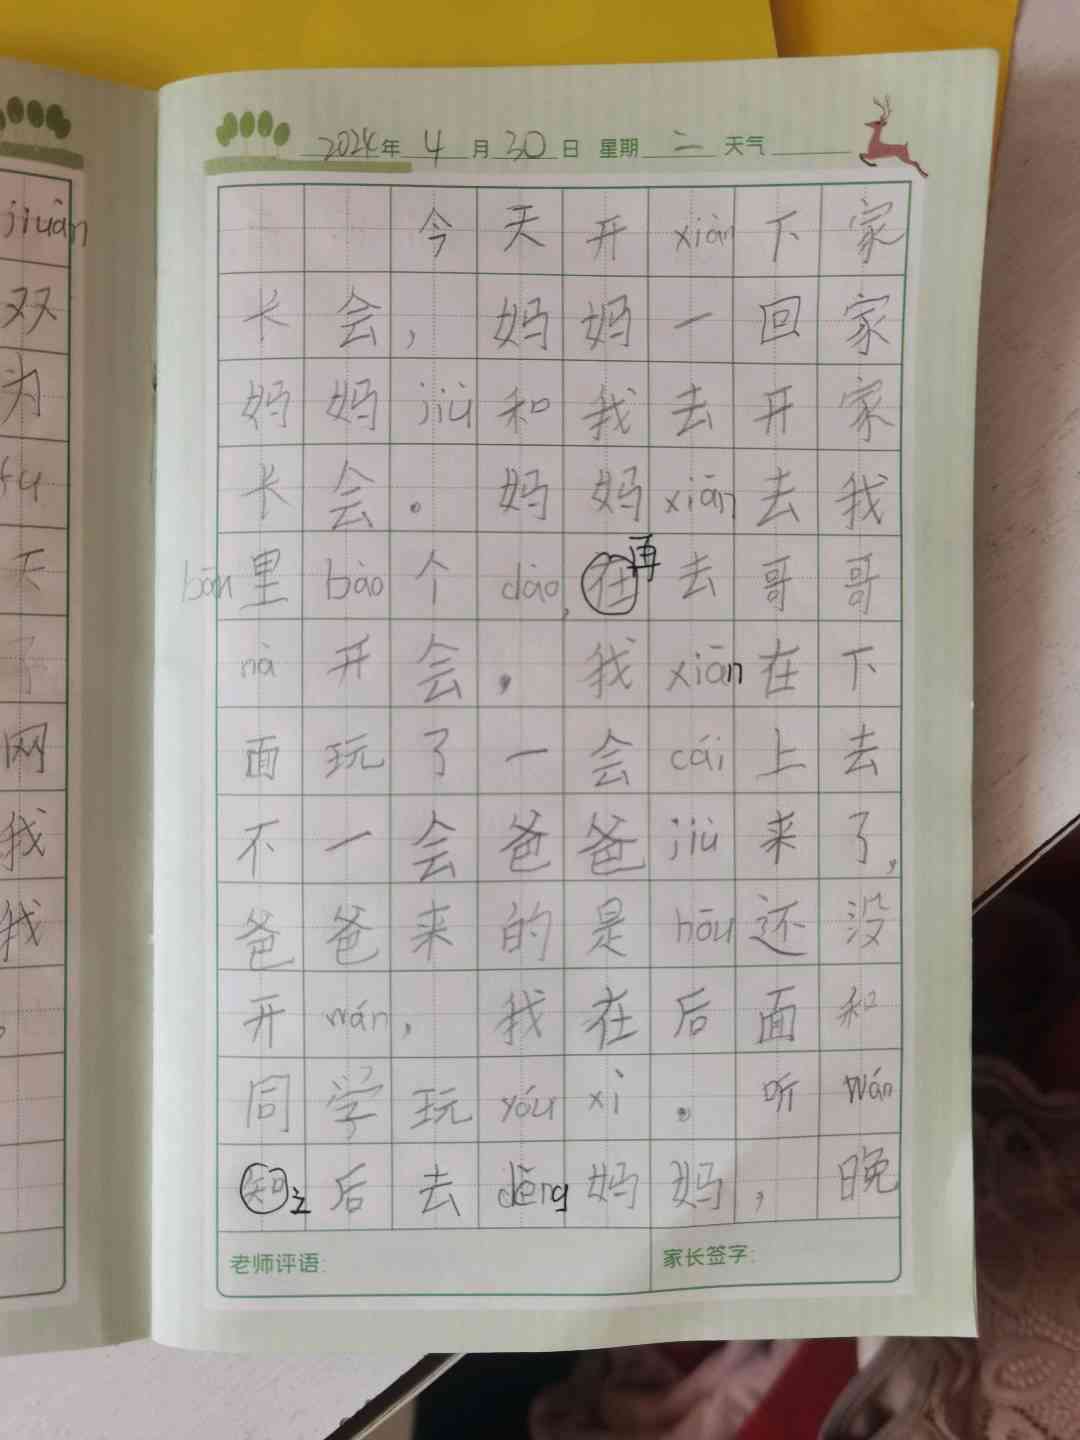 jiuàn
双
为
fu
天
了
网
我
我
。
2024年 4月30日 星期二 天气
今天开xiàn下家
长会，妈妈一回家
妈妈jiù和我去开家
长会。妈妈xiān去我
bān里bào个dào,在再去哥哥
nà开会，我xiān在下
面玩了一会cái上去
不一会爸爸jiù来了，
爸爸来的是hōu还没
开wán，我在后面和
同学玩yóu xì。听wán
知之后去děng妈妈，晚
老师评语： 家长签字：